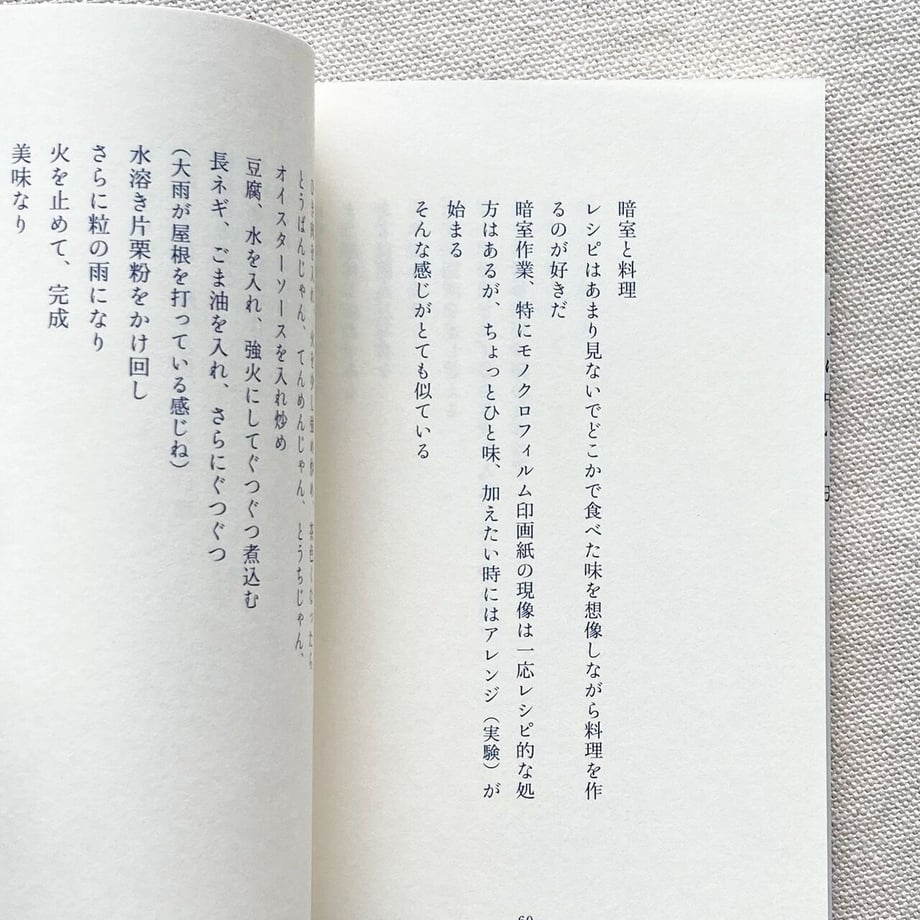 暗室と料理
レシピはあまり見ないでどこかで食べた味を想像しながら料理を作
るのが好きだ
暗室作業、特にモノクロフィルム印画紙の現像は一応レシピ的な処
方はあるが、ちょっとひと味、加えたい時にはアレンジ（実験）が
始まる
そんな感じがとても似ている
60
ひき肉を入れ、火を少し強め炒め、茶色くなったら
とうばんじゃん、てんめんじゃん、とうちじゃん、
オイスターソースを入れ炒め
豆腐、水を入れ、強火にしてぐつぐつ煮込む
長ネギ、ごま油を入れ、さらにぐつぐつ
（大雨が屋根を打っている感じね）
水溶き片栗粉をかけ回し
さらに粒の雨になり
火を止めて、完成
美味なり